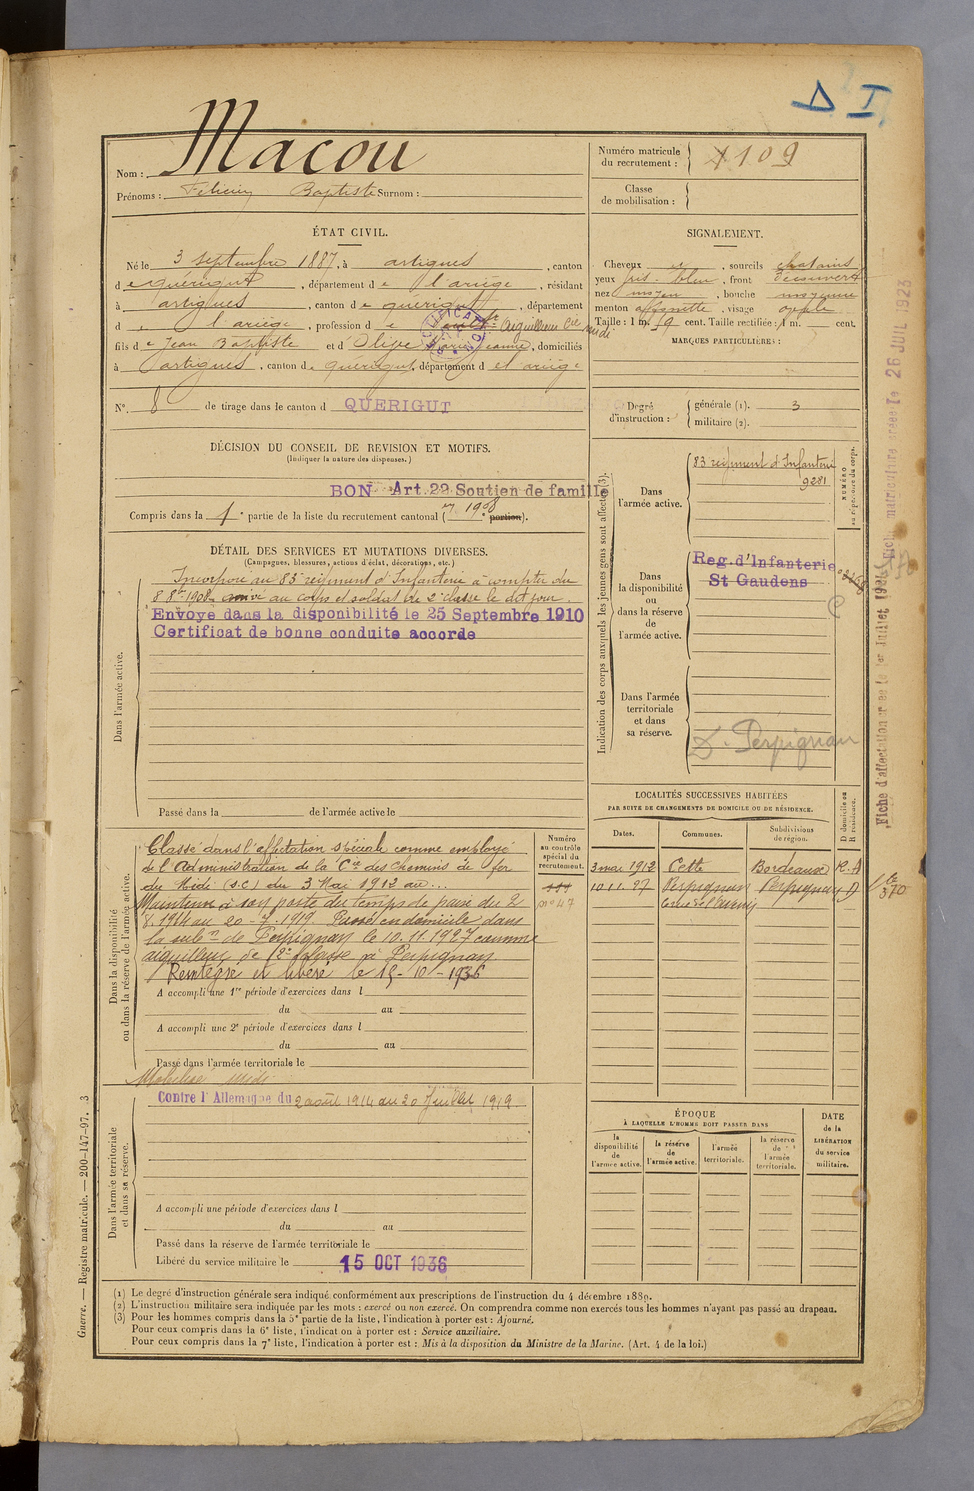 D I
Nom : Macou
Prénoms : Félicien Baptiste Surnom :
Numéro matricule du recrutement : 1109
Classe de mobilisation :
ÉTAT CIVIL.
Né le 3 septembre 1887, à artigues, canton
d e quérigut, département d e l'ariège, résidant
à artigues, canton d e quérigut, département
d e l'ariège, profession d e cult. aiguilleur Cie midi
fils d e Jean Baptiste et d Olive Marie Jeanne, domiciliés
à artigues, canton d e quérigut, département d e l'ariège
RECTIFICATION
N°. 8 de tirage dans le canton d QUERIGUT
SIGNALEMENT.
Cheveux et, sourcils chatains
yeux gris-bleu, front découvert
nez moyen, bouche moyenne
menton visage
Taille : 1 m. 59 cent. Taille rectifiée : 1 m. cent.
MARQUES PARTICULIÈRES :
Degré d'instruction : générale (1). 3
militaire (2).
DÉCISION DU CONSEIL DE REVISION ET MOTIFS.
(Indiquer la nature des dispenses.)
BON Art. 22 Soutien de famille
Compris dans la 1e partie de la liste du recrutement cantonal ( 1908 portion).
DÉTAIL DES SERVICES ET MUTATIONS DIVERSES.
(Campagnes, blessures, actions d'éclat, décorations, etc.)
Dans l'armée active.
Incorporé au 83e régiment d'Infanterie à compter du
8 8bre 1908. arrivé au corps et soldat de 2e classe le dit jour.
Envoyé dans la disponibilité le 25 Septembre 1910
Certificat de bonne conduite accordé
Passé dans la de l'armée active le
Indication des corps auxquels les jeunes gens sont affectés (3).
Dans l'armée active.
83 régiment d'Infanterie
9281
NUMÉRO au répertoire du corps.
Dans la disponibilité ou dans la réserve de l'armée active.
Reg. d'Infanterie
St Gaudens
Dans l'armée territoriale et dans sa réserve.
D. Perpignan
Fiche matriculaire créée le 26 JUIL 1923
Fiche d'affectation créée le 1er Juillet 192
Dans la disponibilité ou dans la réserve de l'armée active.
Classé dans l'affectation spéciale comme employé
de l'Administration de la Cie des chemins de fer
du Midi (s.c) du 3 Mai 1912 au ...
Maintenu à son poste du temps de paix du 2
8.1914 au 20-7-1919. Passé en domicile dans
la subon de Perpignan le 10.11.1927 comme
aiguilleur de 2e classe à Perpignan
Réintégré et libéré le 15-10-1936
A accompli une 1re période d'exercices dans l
du au
A accompli une 2e période d'exercices dans l
du au
Passé dans l'armée territoriale le
Mobilisé Midi
Numéro au contrôle spécial du recrutement.
n° 47
LOCALITÉS SUCCESSIVES HABITÉES
PAR SUITE DE CHANGEMENTS DE DOMICILE OU DE RÉSIDENCE.
Dates. Communes. Subdivisions de région. D domicile ou R résidence.
3 mai 1912 Cette Bordeaux R.
10.11.27 Perpignan Perpignan D
370
Dans l'armée territoriale et dans sa réserve.
Contre l'Allemagne du 2 août 1914 au 20 Juillet 1919
A accompli une période d'exercices dans l
du au
Passé dans la réserve de l'armée territoriale le
Libéré du service militaire le 15 OCT 1936
ÉPOQUE
À LAQUELLE L'HOMME DOIT PASSER DANS
la disponibilité de l'armée active.
la réserve de l'armée active.
l'armée territoriale.
la réserve de l'armée territoriale.
DATE de la LIBÉRATION du service militaire.
(1) Le degré d'instruction générale sera indiqué conformément aux prescriptions de l'instruction du 4 décembre 1889.
(2) L'instruction militaire sera indiquée par les mots : exercé ou non exercé. On comprendra comme non exercés tous les hommes n'ayant pas passé au drapeau.
(3) Pour les hommes compris dans la 5e partie de la liste, l'indication à porter est : Ajourné.
Pour ceux compris dans la 6e liste, l'indication à porter est : Service auxiliaire.
Pour ceux compris dans la 7e liste, l'indication à porter est : Mis à la disposition du Ministre de la Marine. (Art. 4 de la loi.)
Guerre. — Registre matricule. — 200-147-97. 3